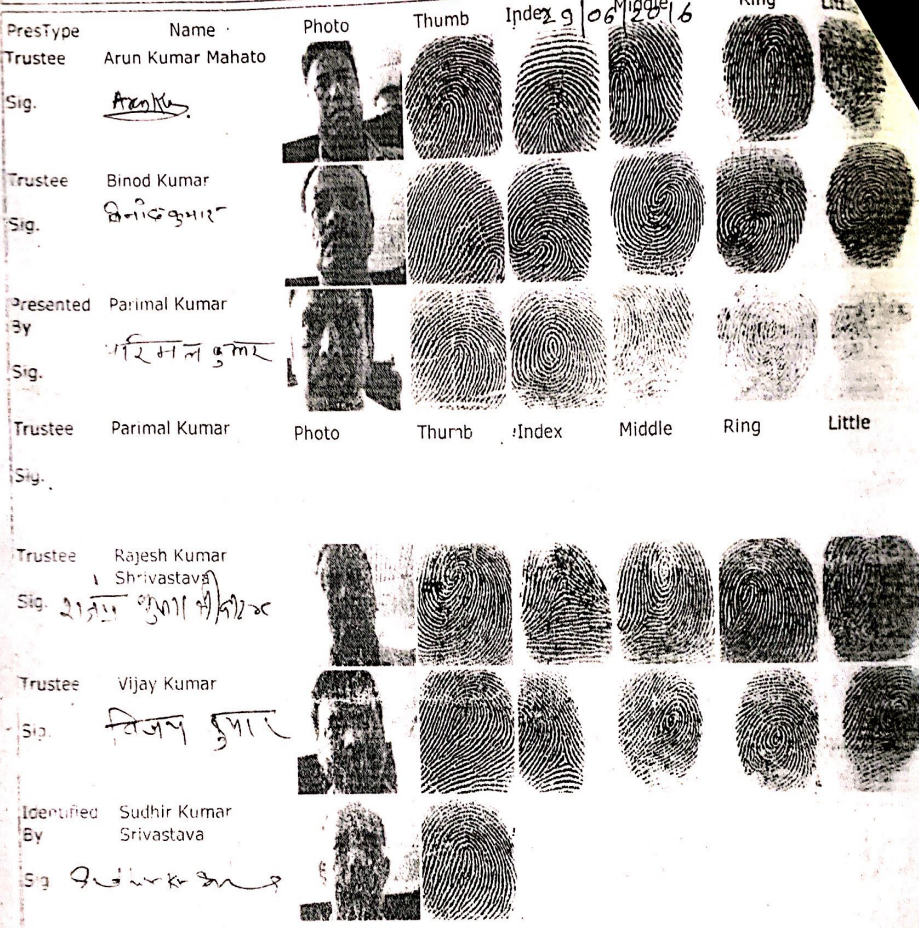 PresType Name Photo Thumb Index Middle Ring
29/06/2016
Trustee Arun Kumar Mahato
Sig. Arun Ku
Trustee Binod Kumar
Sig. बिनोद कुमार
Presented Parimal Kumar
By
Sig. परिमल कुमार
Trustee Parimal Kumar Photo Thumb Index Middle Ring Little
Sig.
Trustee Rajesh Kumar
Shrivastava
Sig. राजेश कुमार श्रीवास्तव
Trustee Vijay Kumar
Sig. विजय कुमार
Identified Sudhir Kumar
By Srivastava
Sig